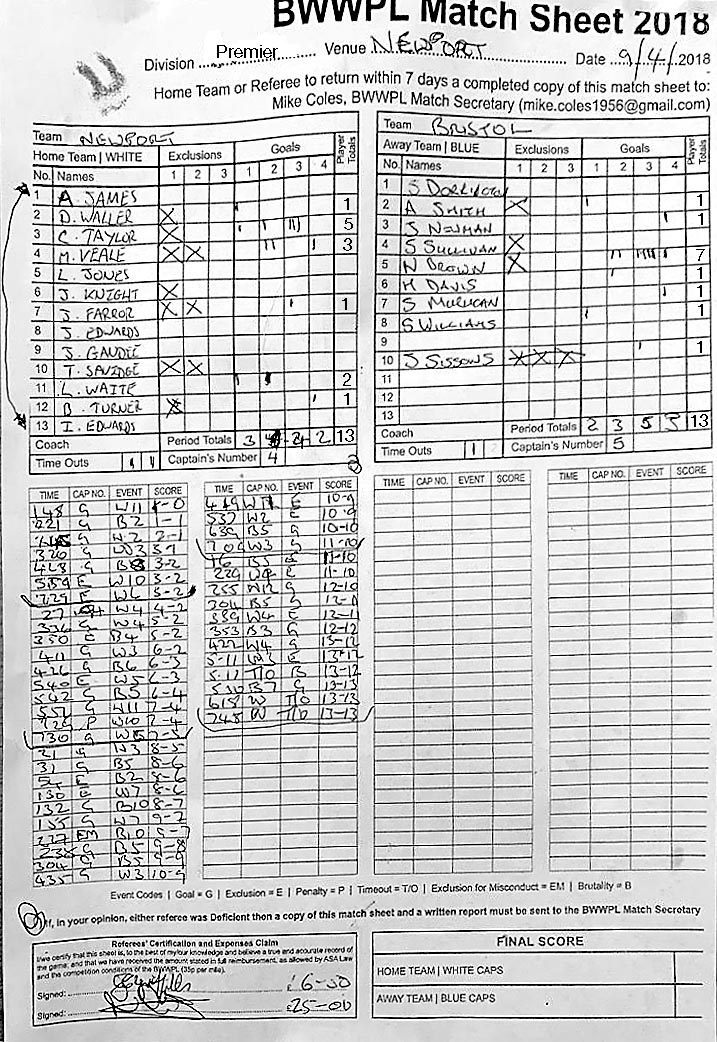 BWWPL Match Sheet 2018
Division Premier Venue NEWPORT Date 9/4/2018
Home Team or Referee to return within 7 days a completed copy of this match sheet to:
Mike Coles, BWWPL Match Secretary (mike.coles1956@gmail.com)
Team NEWPORT
Home Team | WHITE Exclusions Goals Player Totals
No. Names 1 2 3 1 2 3 4
1 A. JAMES
2 D. WALLER X 1
3 C. TAYLOR X 5
4 M. VEALE X X 3
5 L. JONES
6 J. KNIGHT X
7 J. FARROR X X 1
8 J. EDWARDS
9 J. GAUDIE
10 T. SAVIDGE X X
11 L. WAITE 2
12 B. TURNER 1
13 I. EDWARDS
Coach Period Totals 3 4 4 2 13
Time Outs 1 1 Captain's Number 4
Team BRISTOL
Away Team | BLUE Exclusions Goals Player Totals
No. Names 1 2 3 1 2 3 4
1 S
2 A SMITH X 1
3 S NEWMAN 1
4 S SULLIVAN X
5 N BROWN X 7
6 H DAVIS 1
7 S 1
8 S WILLIAMS
9
10 J SISSONS X X X 1
11
12
13
Coach Period Totals 2 3 5 3 13
Time Outs 1 Captain's Number 5
TIME CAP NO. EVENT SCORE
148 G W11 1-0
221 G B2 1-1
G W2 2-1
320 G W3 3-1
G B8 3-2
559 E W10 3-2
729 E W6 3-2
27 W4 4-2
336 G W4 5-2
350 E B4 5-2
411 G W3 6-2
426 G B6 6-3
540 E W5 6-3
542 G B5 6-4
551 G W11 7-4
729 P W10 7-4
730 G 7-5
31 G W3 8-5
31 G B5 8-6
E B2 8-6
130 E W7 8-6
132 G B10 8-7
155 G W7 9-7
227 EM B10 9-7
235 G B5 9-8
304 G B5 9-9
435 G W3 10-9
TIME CAP NO. EVENT SCORE
449 10-9
537 W2 E 10-9
639 B5 G 10-10
706 W3 G 11-10
16 E 11-10
229 E 11-10
255 W12 G 12-10
304 B5 G 12-11
339 W4 E 12-11
353 B3 G 12-12
422 W4 G 13-12
511 E 13-12
517 T/O B 13-12
530 B7 G 13-13
618 W T/O 13-13
748 W T/O 13-13
TIME CAP NO. EVENT SCORE
TIME CAP NO. EVENT SCORE
Event Codes | Goal = G | Exclusion = E | Penalty = P | Timeout = T/O | Exclusion for Misconduct = EM | Brutality = B
If, in your opinion, either referee was Deficient then a copy of this match sheet and a written report must be sent to the BWWPL Match Secretary
Referees' Certification and Expenses Claim
I/we certify that this sheet is, to the best of my/our knowledge and believe a true and accurate record of
the game, and that we have received the amount stated in full reimbursement, as allowed by ASA Law
and the competition conditions of the BWWPL (35p per mile).
Signed: £6-00
Signed: £25-00
FINAL SCORE
HOME TEAM | WHITE CAPS
AWAY TEAM | BLUE CAPS